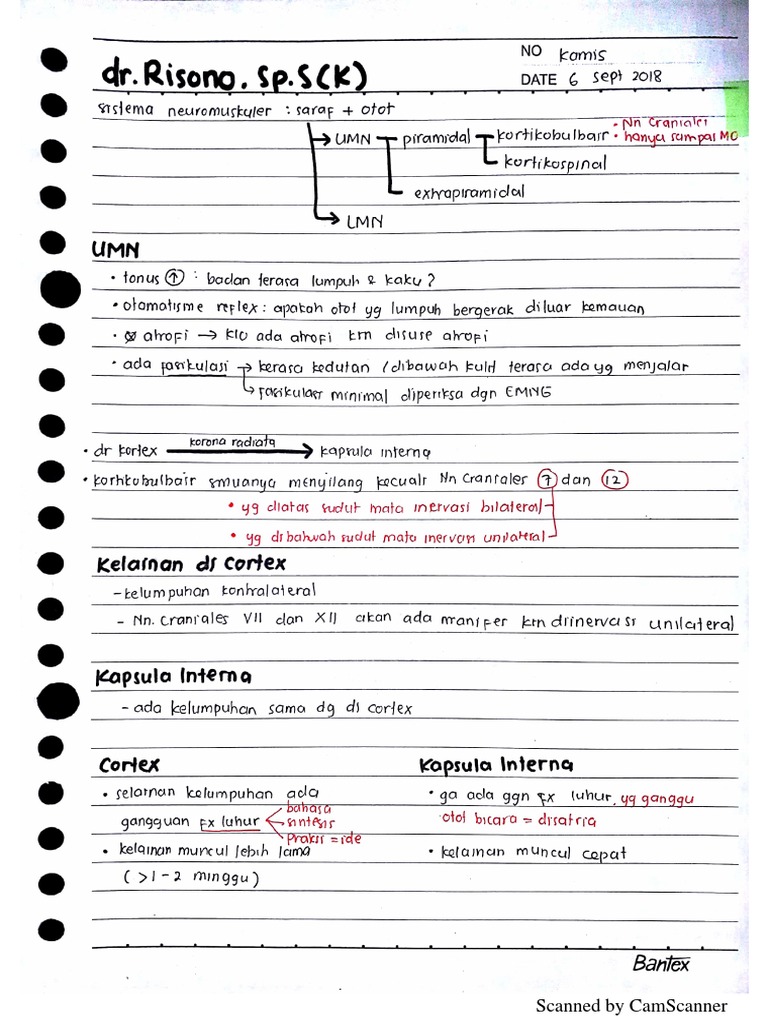 NO Kamis
dr. Risono. Sp.S(K)
DATE 6 Sept 2018
sistema neuromuskuler : saraf + otot
• Nn Craniales
→ UMN piramidal kortikobulbair • hanya sampai MO
kortikospinal
extrapiramidal
→ LMN
UMN
• tonus ↑ : badan terasa lumpuh & kaku?
• otomatisme reflex : apakah otot yg lumpuh bergerak diluar kemauan
• atrofi → klo ada atrofi krn disuse atrofi
• ada fasikulasi → kerasa kedutan / dibawah kulit terasa ada yg menjalar
→ fasikulasi minimal diperiksa dgn EMNG
korona radiata
• dr kortex → kapsula interna
• kortikobulbair smuanya menyilang kecuali Nn Craniales 7 dan 12
• yg diatas sudut mata inervasi bilateral
• yg dibahwah sudut mata inervasi unilateral
Kelainan di Cortex
- kelumpuhan kontralateral
- Nn. Craniales VII dan XII akan ada manifes krn diinervasi unilateral
Kapsula Interna
- ada kelumpuhan sama dg di cortex
Cortex Kapsula Interna
• selainan kelumpuhan ada • ga ada ggn fx luhur, yg ganggu
bahasa
gangguan fx luhur sintesis otot bicara = disatria
praksi = ide
• kelainan muncul lebih lama • kelainan muncul cepat
( >1-2 minggu )
Bantex
Scanned by CamScanner